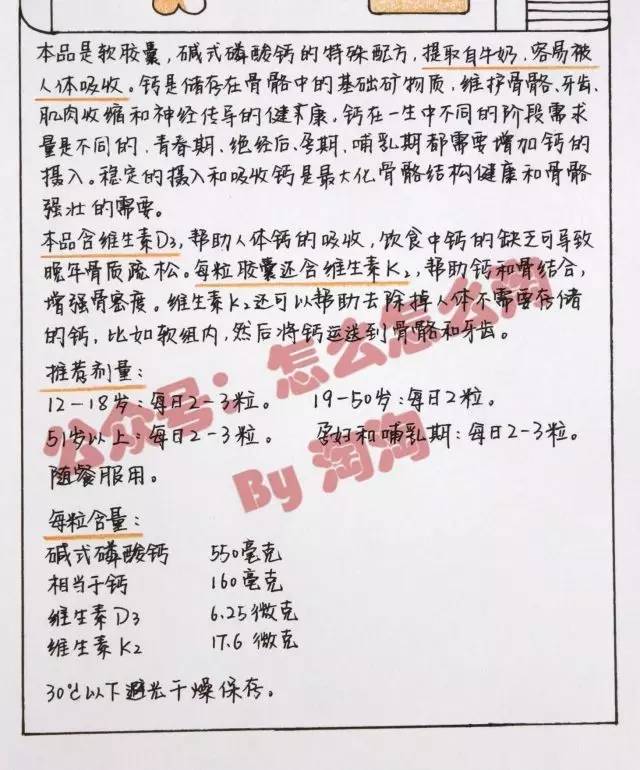 本品是软胶囊,碱式磷酸钙的特殊配方,提取自牛奶,容易被
人体吸收。钙是储存在骨骼中的基础矿物质,维护骨骼、牙齿、
肌肉收缩和神经传导的健康。钙在一生中不同的阶段需求
量是不同的、青春期、绝经后、孕期、哺乳期都需要增加钙的
摄入。稳定的摄入和吸收钙是最大化骨骼结构健康和骨骼
强壮的需要。
本品含维生素D3,帮助人体钙的吸收,饮食中钙的缺乏可导致
晚年骨质疏松。每粒胶囊还含维生素K2,帮助钙和骨结合,
增强骨密度。维生素K2还可以帮助去除掉人体不需要存储
的钙,比如软组内,然后将钙运送到骨骼和牙齿。
推荐剂量:
12-18岁:每日2-3粒。 19-50岁:每日2粒。
51岁以上:每日2-3粒。 孕妇和哺乳期:每日2-3粒。
随餐服用。
每粒含量:
碱式磷酸钙 550毫克
相当于钙 160毫克
维生素D3 6.25微克
维生素K2 17.6微克
30℃以下避光干燥保存。
公众号:怎么怎么淘
By 淘淘